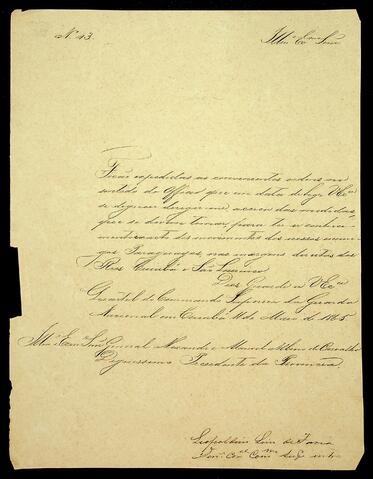 N. 43.
Illmo. e Exmo. Snr.
Ficão expedidas as convenientes ordens no
sentido do Officio que em data de hoje V Exca.
se dignou dirigir-me, acerca das medidas,
que se devem tomar para ter
dos movimentos dos nossos inimi-
gos Paraguayos, nas margens direitas dos
Rios Cuiabá e São Lourenço.
Deus Guarde a V Exca.
Quartel do Commando Superior da Guarda
Nacional em Cuiabá de Maio de 1865
Illmo. e Exmo. Snr. General Alexandre Manoel Albino de Carvalho
Dignissimo Presidente da Provincia.
Leopoldino Lino de Faria
Ten. Cel. Come. Supr. into.